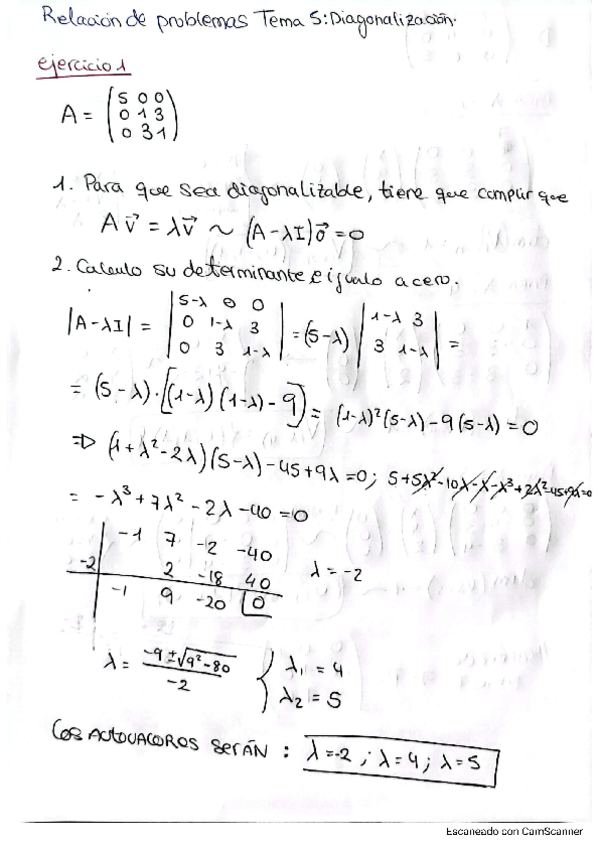 Relación de problemas Tema 5: Diagonalización.
ejercicio 1
A = (5 0 0
0 1 3
0 3 1)
1. Para que sea diagonalizable, tiene que cumplir que
A v⃗ = λv⃗ ~ (A-λI)o⃗ = 0
2. Calculo su determinante e igualo a cero.
|A-λI| = |5-λ 0 0
0 1-λ 3
0 3 1-λ| = (5-λ) |1-λ 3
3 1-λ| =
= (5-λ)·[(1-λ)(1-λ)-9] = (1-λ)²(5-λ)-9(5-λ) = 0
⇒ (1+λ²-2λ)(5-λ)-45+9λ=0; 5+5λ²-10λ-λ-λ³+2λ²-45+9λ=0
= -λ³+7λ²-2λ-40=0
-1 7 -2 -40
-2 2 -18 40 λ = -2
-1 9 -20 0
λ = -9±√9²-80 / -2 { λ₁ = 4
λ₂ = 5
Los AUTOVALOROS SERÁN : λ=-2 ; λ=4 ; λ=5
Escaneado con CamScanner